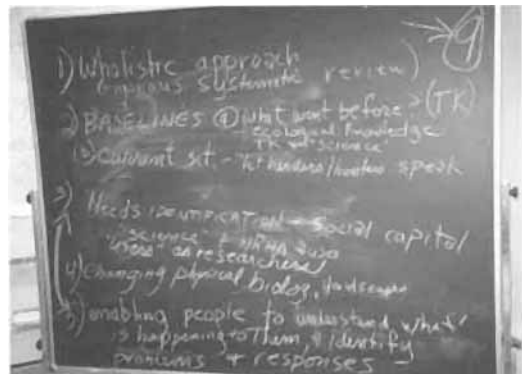 9
1) Wholistic approach
(rigorous systematic review)
2) BASELINES ⓐ what went before > (TK)
- ecological knowledge
TK "science"
current sit. - speak
3) Needs identification - social capital
"science"
"users" as researchers
4) Changing physical, biolog, landscapes
5) enabling people to understand, what
is happening to them, & identify
problems + responses -